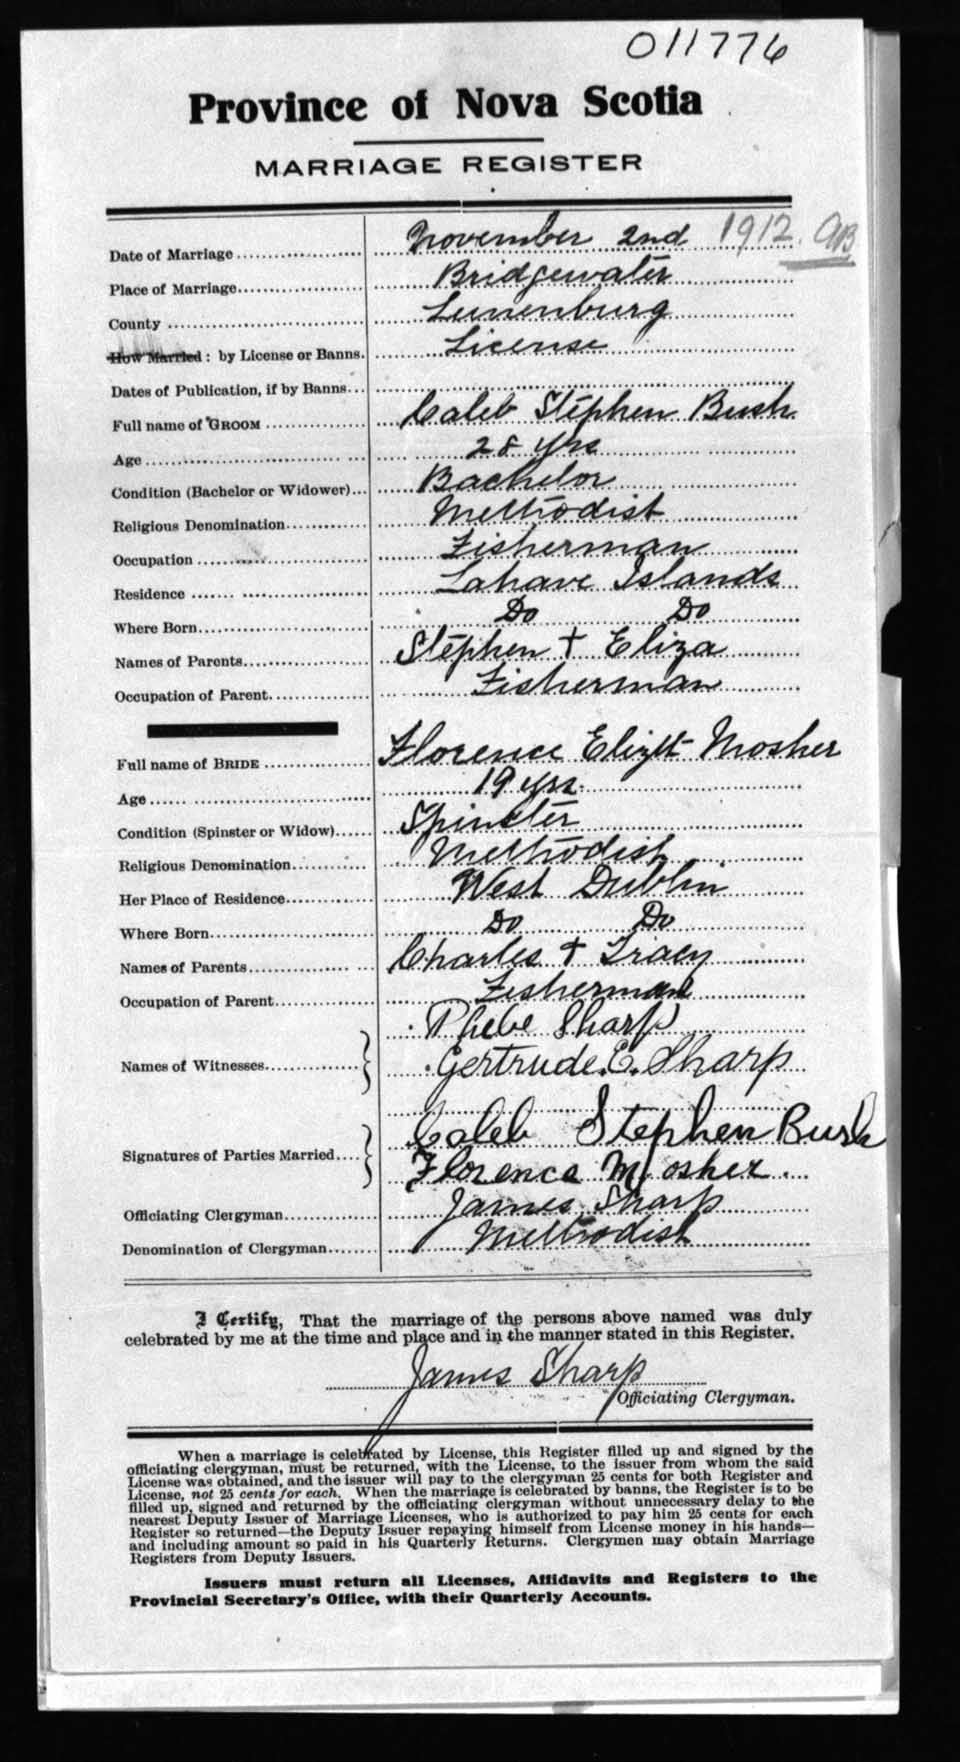 011776
Province of Nova Scotia
MARRIAGE REGISTER
Date of Marriage November 2nd 1912. AB
Place of Marriage Bridgewater
County Lunenburg
How Married: by License or Banns. License
Dates of Publication, if by Banns
Full name of GROOM Caleb Stephen Bush
Age 28 yrs
Condition (Bachelor or Widower) Bachelor
Religious Denomination Methodist
Occupation Fisherman
Residence Lahave Islands
Where Born Do Do
Names of Parents Stephen + Eliza
Occupation of Parent Fisherman
Full name of BRIDE Florence Elizth Mosher
Age 19 yrs.
Condition (Spinster or Widow) Spinster
Religious Denomination Methodist
Her Place of Residence West Dublin
Where Born Do Do
Names of Parents Charles + Tracy
Occupation of Parent Fisherman
Phebe Sharp
Names of Witnesses Gertrude. E. Sharp
Caleb Stephen Bush
Signatures of Parties Married Florence Mosher.
Officiating Clergyman James Sharp
Denomination of Clergyman Methodist
I Certify, That the marriage of the persons above named was duly
celebrated by me at the time and place and in the manner stated in this Register.
James Sharp
Officiating Clergyman.
When a marriage is celebrated by License, this Register filled up and signed by the
officiating clergyman, must be returned, with the License, to the issuer from whom the said
License was obtained, and the issuer will pay to the clergyman 25 cents for both Register and
License, not 25 cents for each. When the marriage is celebrated by banns, the Register is to be
filled up, signed and returned by the officiating clergyman without unnecessary delay to the
nearest Deputy Issuer of Marriage Licenses, who is authorized to pay him 25 cents for each
Register so returned—the Deputy Issuer repaying himself from License money in his hands—
and including amount so paid in his Quarterly Returns. Clergymen may obtain Marriage
Registers from Deputy Issuers.
Issuers must return all Licenses, Affidavits and Registers to the
Provincial Secretary's Office, with their Quarterly Accounts.